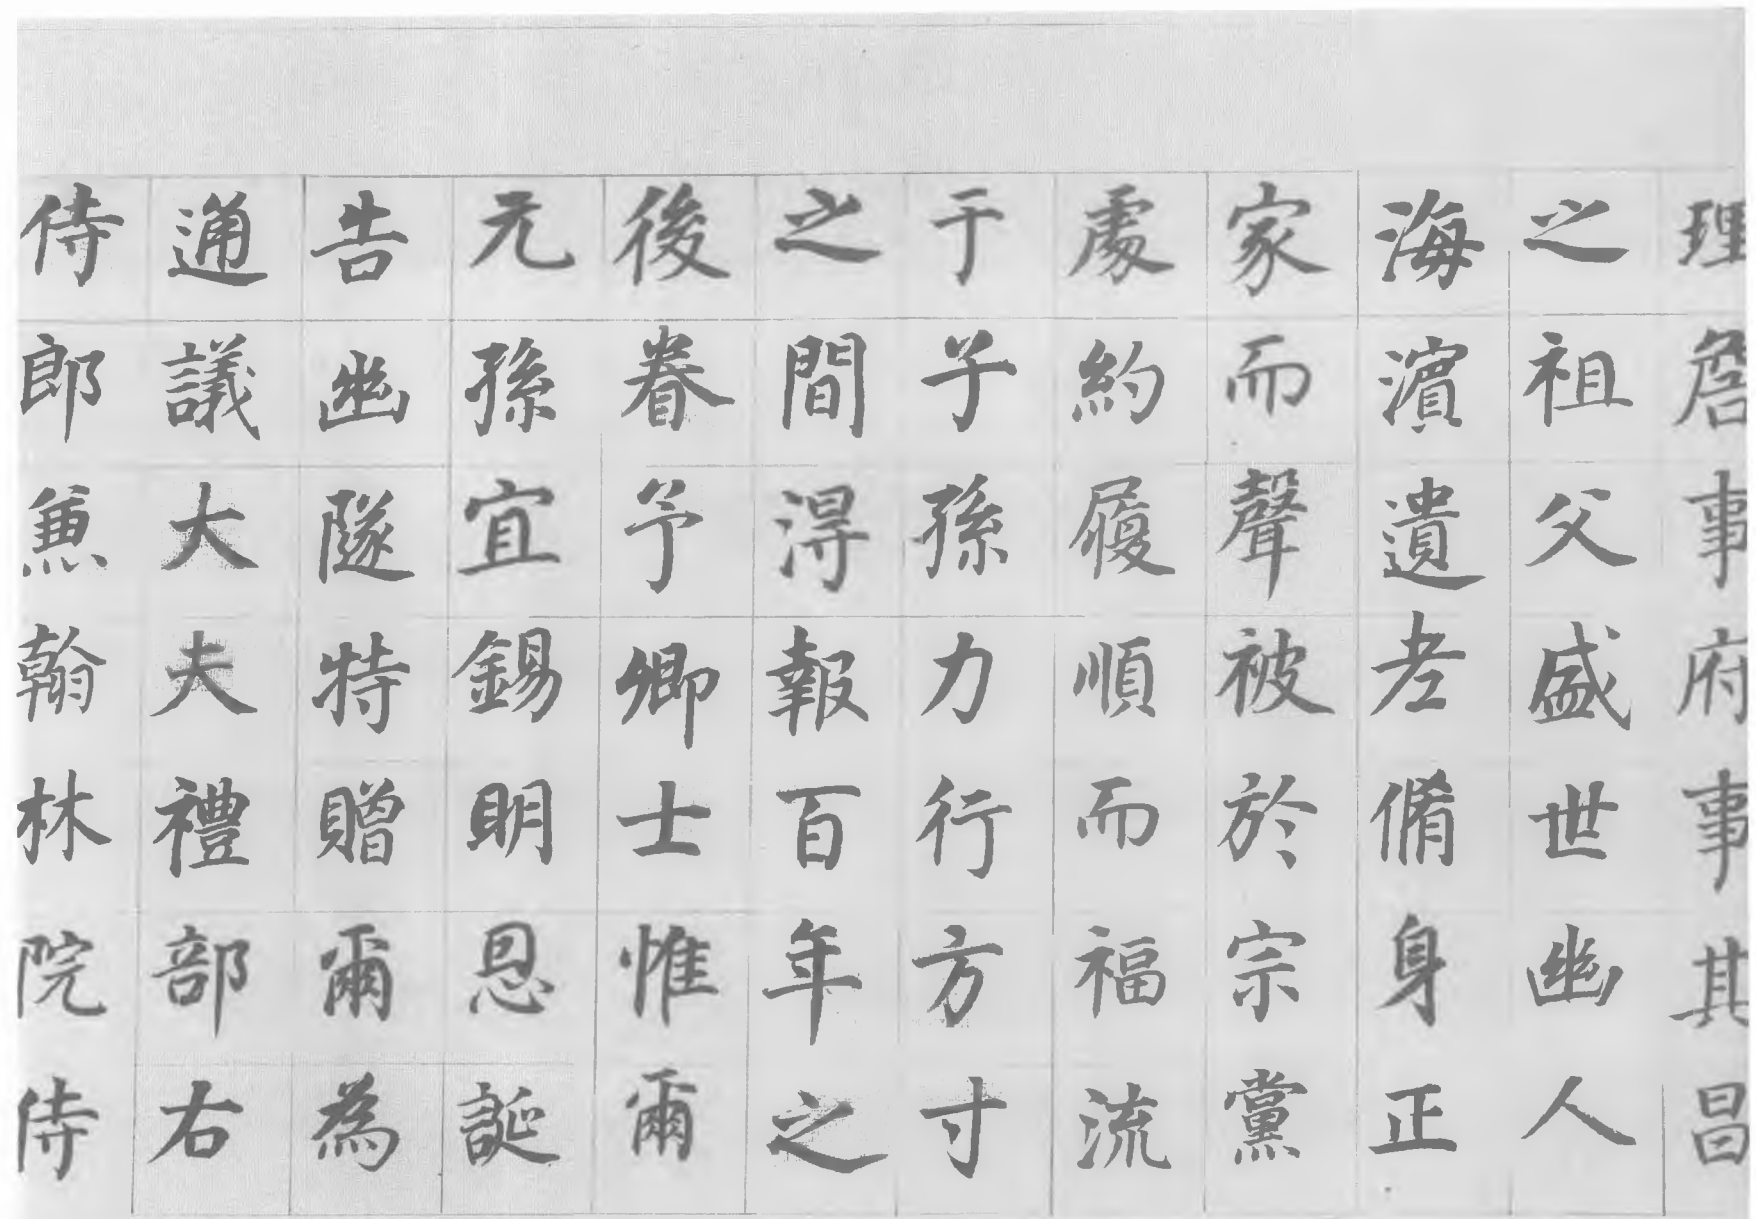 理詹事府事其昌
之祖父盛世幽人
海濱遺老脩身正
家而聲被於宗黨
處約履順而福流
于子孫力行方寸
之間淂報百年之
後眷予卿士惟爾
元孫宜錫明恩誕
告幽隧特贈爾為
通議大夫禮部右
侍郎兼翰林院侍